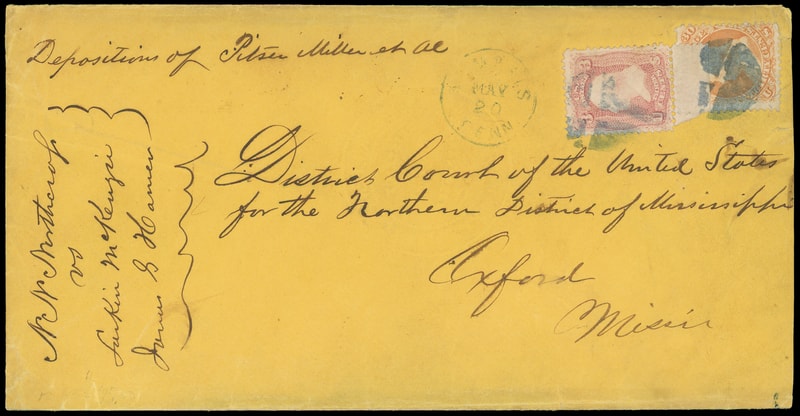 Depositions of Pitser Miller et al
MEMPHIS
MAY
20
TENN
30
3
3
District Court of the United States
for the Northern District of Mississippi
Oxford
Missi
N N Northcrop
vs
Larkin McKenzie
James G